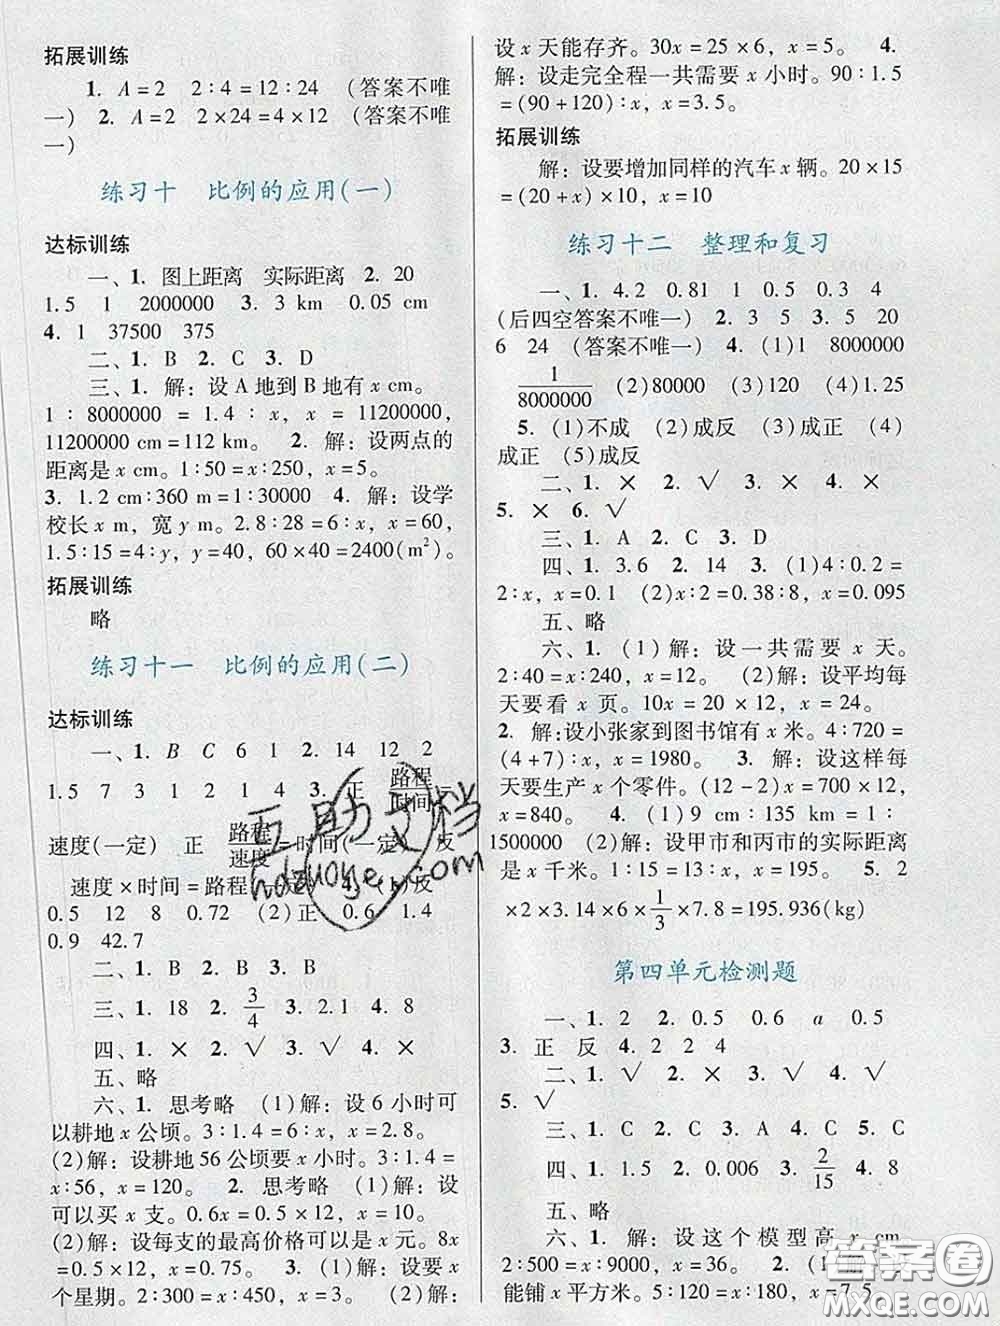 拓展训练
1. A=2 2∶4=12∶24 (答案不唯
一) 2. A=2 2×24=4×12 (答案不唯
一)
练习十 比例的应用(一)
达标训练
一、1. 图上距离 实际距离 2. 20
1.5 1 2000000 3. 3 km 0.05 cm
4. 1 37500 375
二、1. B 2. C 3. D
三、1. 解:设 A 地到 B 地有 x cm。
1∶8000000 = 1.4∶x, x = 11200000,
11200000 cm=112 km。 2. 解:设两点的
距离是 x cm。1∶50=x∶250, x=5。
3. 1.2 cm∶360 m=1∶30000 4. 解:设学
校长 x m, 宽 y m。2.8∶28=6∶x, x=60,
1.5∶15=4∶y, y=40, 60×40=2400(m²)。
拓展训练
略
练习十一 比例的应用(二)
达标训练
一、1. B C 6 1 2. 14 12 2
1.5 7 3 1 2 1 4 3. 正 路程/时间=
速度(一定) 正 路程/速度=时间(一定) 反
速度×时间=路程(一定) 4. (1)反
0.5 12 8 0.72 (2)正 0.6 1.4
0.9 42.7
二、1. B 2. B 3. B
三、1. 18 2. 3/4 3. 2.1 4. 8
四、1. × 2. √ 3. √ 4. ×
五、略
六、1. 思考略 (1)解:设 6 小时可
以耕地 x 公顷。3∶1.4=6∶x, x=2.8。
(2)解:设耕地 56 公顷要 x 小时。3∶1.4=
x∶56, x=120。 2. 思考略 (1)解:设
可以买 x 支。0.6x=0.5×12, x=10。
(2)解:设每支的最高价格可以是 x 元。8x
=0.5×12, x=0.75。 3. (1)解:设要 x
个星期。2∶300=x∶450, x=3。 (2)解:
设 x 天能存齐。30x=25×6, x=5。 4.
解:设走完全程一共需要 x 小时。90∶1.5
=(90+120)∶x, x=3.5。
拓展训练
解:设要增加同样的汽车 x 辆。20×15
=(20+x)×10, x=10。
练习十二 整理和复习
一、1. 4.2 0.81 1 0.5 0.3 4
(后四空答案不唯一) 2. 3 5 3. 5 20
6 24 (答案不唯一) 4. (1)1 8000000
1/8000000 (2)80000 (3)120 (4)1.25
5. (1)不成 (2)成反 (3)成正 (4)
成正 (5)成反
二、1. × 2. √ 3. × 4. ×
5. × 6. √
三、1. A 2. C 3. D
四、1. 3.6 2. 14 3. (1)4∶0.2=
2∶x, x=0.1 (2)x∶2=0.38∶8, x=0.095
五、略
六、1. (1)解:设一共需要 x 天。
2∶40=x∶240, x=12。 (2)解:设平均每
天要看 x 页。10x=20×12, x=24。
2. 解:设小张家到图书馆有 x 米。4∶720=
(4+7)∶x, x=1980。 3. 解:设这样每
天要生产 x 个零件。(12-2)x=700×12,
x=840。 4. (1)9 cm∶135 km=1∶
1500000 (2)解:设甲市和丙市的实际距离
是 x 千米。1∶15=13∶x, x=195。 5. 2
×2×3.14×6×1/3×7.8=195.936(kg)
第四单元检测题
一、1. 2 2. 0.5 0.6 a 0.5
3. 正 反 4. 2 2 4
二、1. √ 2. × 3. √ 4. √
5. √
三、1. C 2. C 3. A 4. C 5. C
四、1. 1.5 2. 0.006 3. 2/15 4. 8
五、略
六、1. 解:设这个模型高 x cm
2∶500=x∶9000, x=36。 2. (1)解:设
能铺 x 平方米。5∶10=x∶180, x=7.5
互助文档
hdzuoye.com
答案圈
MXQE.COM